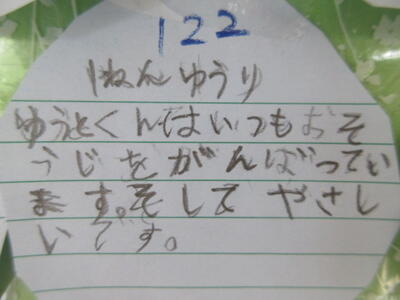 122
1ねんゆうり
ゆうとくんはいつもおそ
うじをがんばってい
ます。そしてやさし
いです。